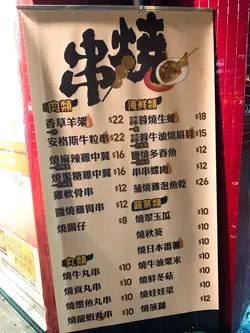 串燒
肉類
香草羊架 $22
安格斯牛粒串 $22
燒麻辣雞中翼 $16
燒蜜糖雞中翼 $16
雞軟骨串 $12
醬燒雞腎串 $12
燒腸仔 $8
丸類
燒牛丸串 $10
燒貢丸串 $10
燒墨魚丸串 $10
燒龍蝦丸串 $10
海鮮類
蒜蓉燒生蠔 $18
蒜蓉牛油燒扇貝 $15
鹽燒多春魚 $12
串串螺肉 $13
蒲燒汁魷魚乾 $12
蔬菜類
燒翠玉瓜 $10
燒秋葵 $10
燒日本番薯 $10
燒牛油粟米 $10
燒鮮冬菇 $10
燒娃娃菜 $10
燒菠蘿 $12